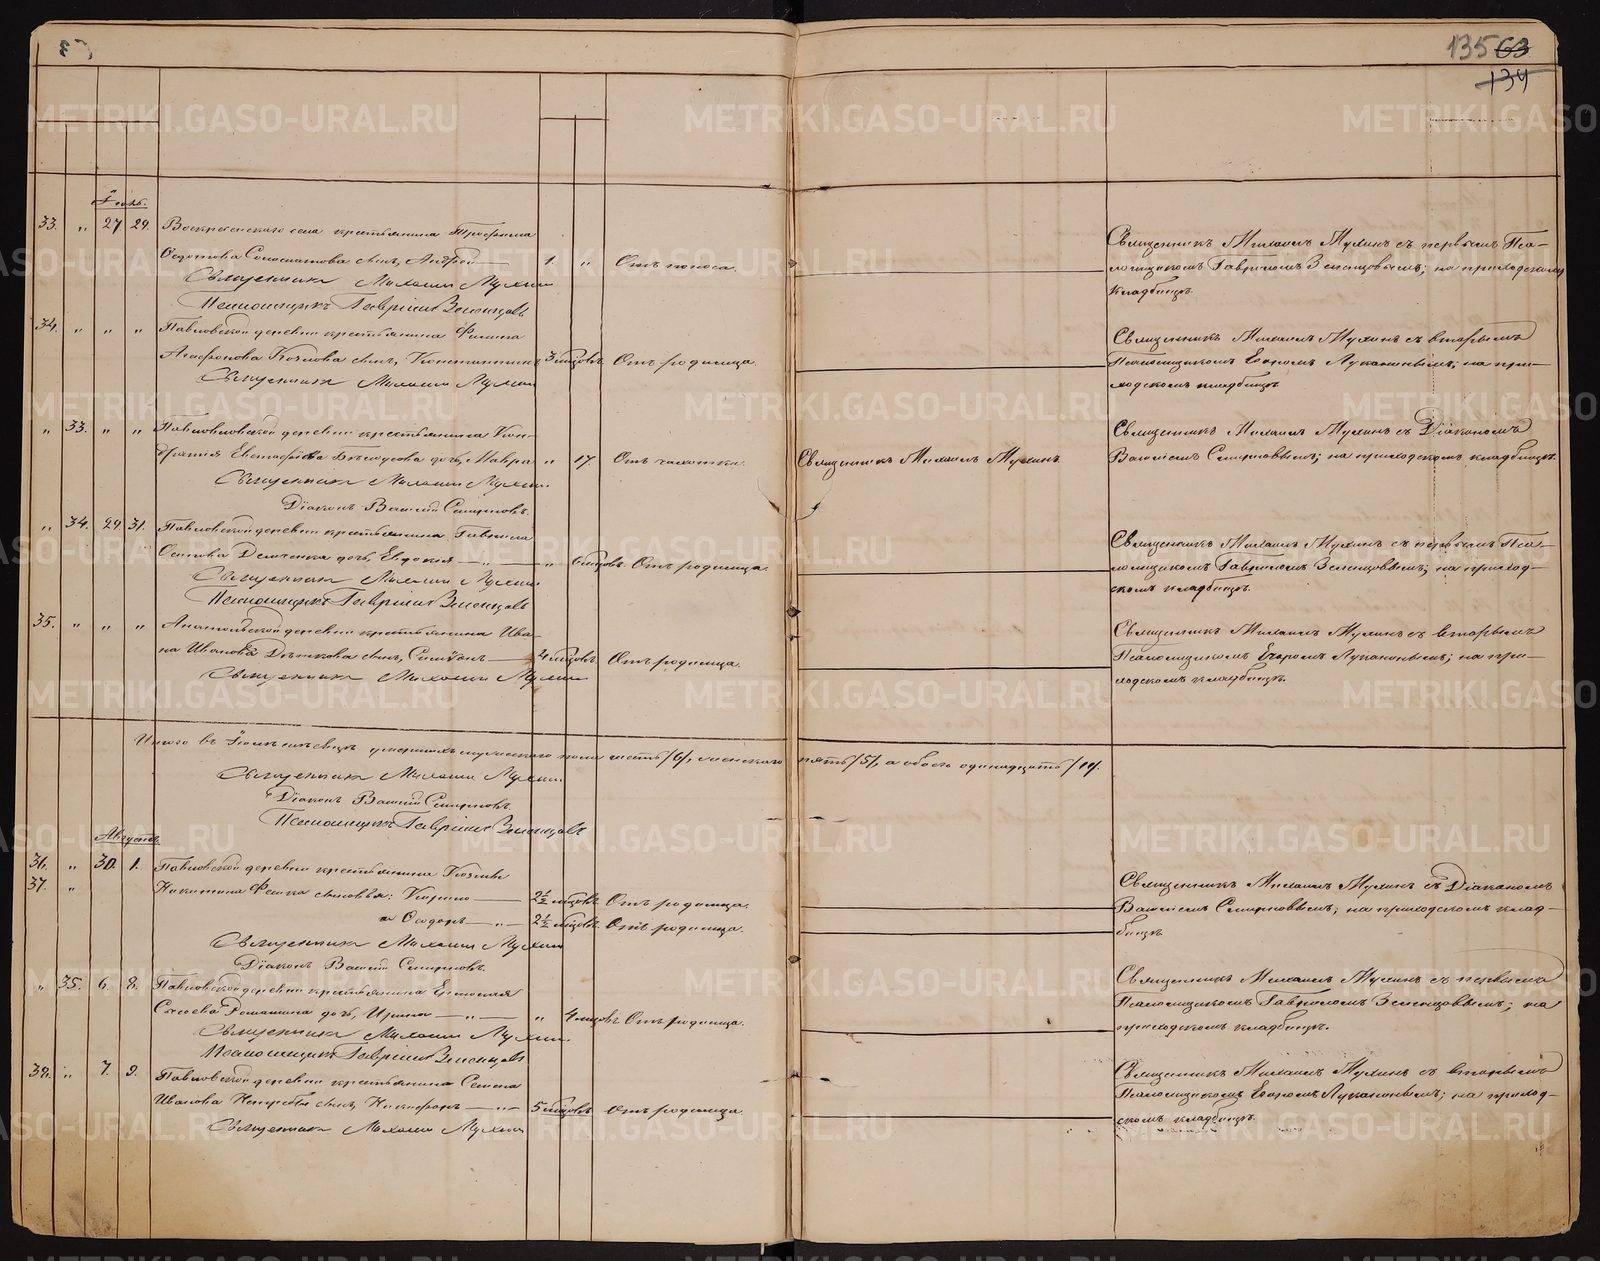 135 63
134
METRIKI.GASO-URAL.RU
Іюль.
33. „ 27. 29. Воскресенскаго села крестьянина Трофима
Федотова сынъ, Андрей 1. „ Отъ поноса.
Священникъ Михаилъ Мухинъ
Псаломщикъ Гавріилъ Зеленцовъ
Священникъ Михаилъ Мухинъ съ первымъ Пса-
ломщикомъ Гавріиломъ Зеленцовымъ; на приходскомъ
кладбищѣ.
34. „ „ „ Павловской деревни крестьянина Филипа
Агафонова Козлова сынъ, Константинъ 3 мѣсяцовъ Отъ родимца.
Священникъ Михаилъ Мухинъ
Священникъ Михаилъ Мухинъ съ вторымъ
Псаломщикомъ Егоромъ Лукаинымъ; на при-
ходскомъ кладбищѣ.
„ 33. „ „ Павловской деревни крестьянина Кон-
дратія дочь, Мавра „ 17. Отъ чахотки. Священникъ Михаилъ Мухинъ.
Священникъ Михаилъ Мухинъ
Діаконъ Василій Смирновъ.
Священникъ Михаилъ Мухинъ съ Діакономъ
Василіемъ Смирновымъ; на приходскомъ кладбищѣ.
„ 34. 29. 31. Павловской деревни крестьянина Гавріила
Осипова дочь, Евдокія „ 6 мѣсяцовъ. Отъ родимца.
Священникъ Михаилъ Мухинъ
Псаломщикъ Гавріилъ Зеленцовъ
Священникъ Михаилъ Мухинъ съ первымъ Пса-
ломщикомъ Гавріиломъ Зеленцовымъ; на приход-
скомъ кладбищѣ.
35. „ „ „ деревни крестьянина Ива-
на Иванова сынъ, Симеонъ 4 мѣсяцовъ Отъ родимца.
Священникъ Михаилъ Мухинъ
Священникъ Михаилъ Мухинъ съ вторымъ
Псаломщикомъ Егоромъ Лукаинымъ; на при-
ходскомъ кладбищѣ.
Итого въ Іюлѣ мѣсяцѣ умершихъ мужескаго пола шесть /6/, женскаго пять /5/, а обоего одинадцать /11/.
Священникъ Михаилъ Мухинъ
Діаконъ Василій Смирновъ.
Псаломщикъ Гавріилъ Зеленцовъ
Августъ.
36. „ 30. 1. Павловской деревни крестьянина Козьмы
37. „ Никитина сыновья: Кирилъ 2½ мѣсяцовъ Отъ родимца.
и Федоръ 2½ мѣсяцовъ. Отъ родимца.
Священникъ Михаилъ Мухинъ
Діаконъ Василій Смирновъ.
Священникъ Михаилъ Мухинъ съ Діакономъ
Василіемъ Смирновымъ; на приходскомъ клад-
бищѣ.
„ 35. 6. 8. Павловской деревни крестьянина Ермолая
дочь, Ирина „ 4 мѣсяцовъ Отъ родимца.
Священникъ Михаилъ Мухинъ
Псаломщикъ Гавріилъ Зеленцовъ
Священникъ Михаилъ Мухинъ съ первымъ
Псаломщикомъ Гавріиломъ Зеленцовымъ; на
приходскомъ кладбищѣ.
38. „ 7. 9. Павловской деревни крестьянина Семена
Иванова сынъ, Никифоръ 5 мѣсяцовъ Отъ родимца.
Священникъ Михаилъ Мухинъ
Священникъ Михаилъ Мухинъ съ вторымъ
Псаломщикомъ Егоромъ Лукаинымъ; на приход-
скомъ кладбищѣ.